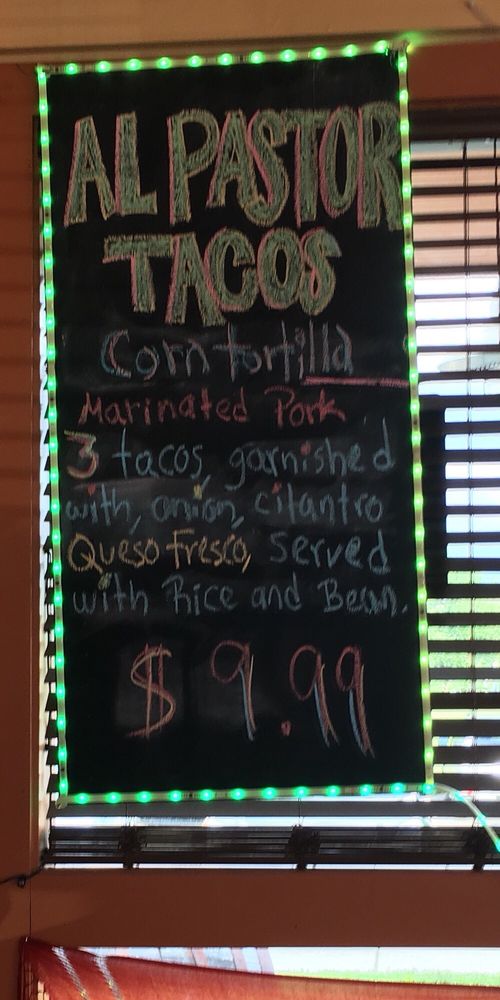 AL PASTOR
TACOS
Corn tortilla
Marinated Pork
3 tacos garnished
with, onion, cilantro
Queso Fresco, Served
with Rice and Bean.
$9.99